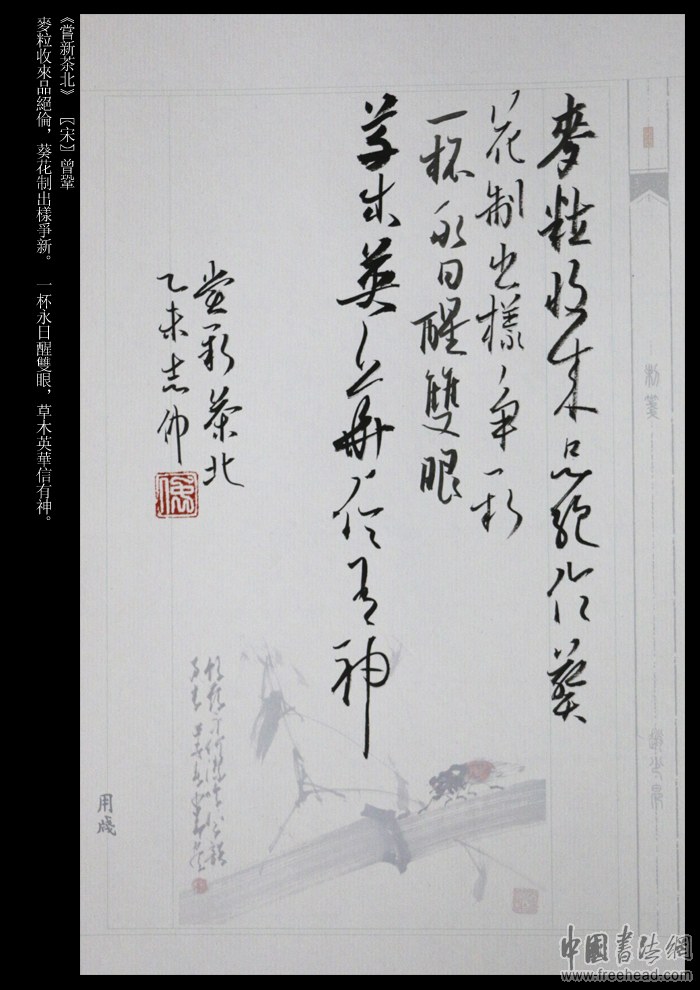 麥粒收來品絕倫葵
花制出樣爭新
一杯永日醒雙眼
草木英華信有神
嘗新茶北
乙未志
用牋
《嘗新茶北》 [宋]曾鞏
麥粒收來品絕倫,葵花制出樣爭新。 一杯永日醒雙眼,草木英華信有神。
中國書法網
www.freehead.com